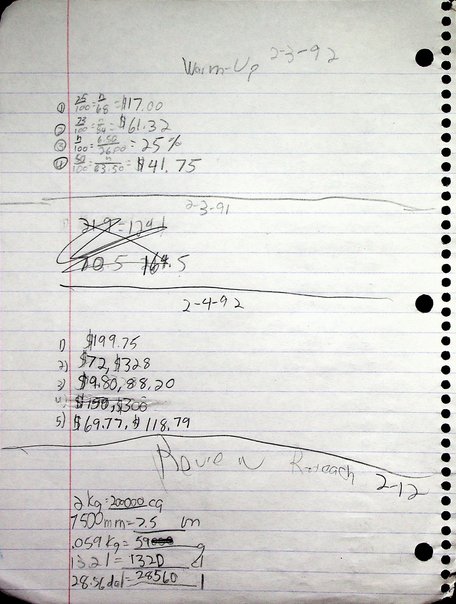 Warm-Up 2-3-92
① 25/100 = n/68 = $17.00
② 73/100 = n/84 = $61.32
③ n/100 = 6.50/26.00 = 25%
④ 50/100 = n/83.50 = $41.75
2-3-91
2-4-92
1) $199.75
2) $72, $328
3) $9.80, 88.20
4) $150, $300
5) $69.77, $118.79
2-12
2 kg = 200000 cg
7500 mm = 7.5 m
.059 kg = 59 g
13.2 l = 1320 l
28.56 dal = 28560 l